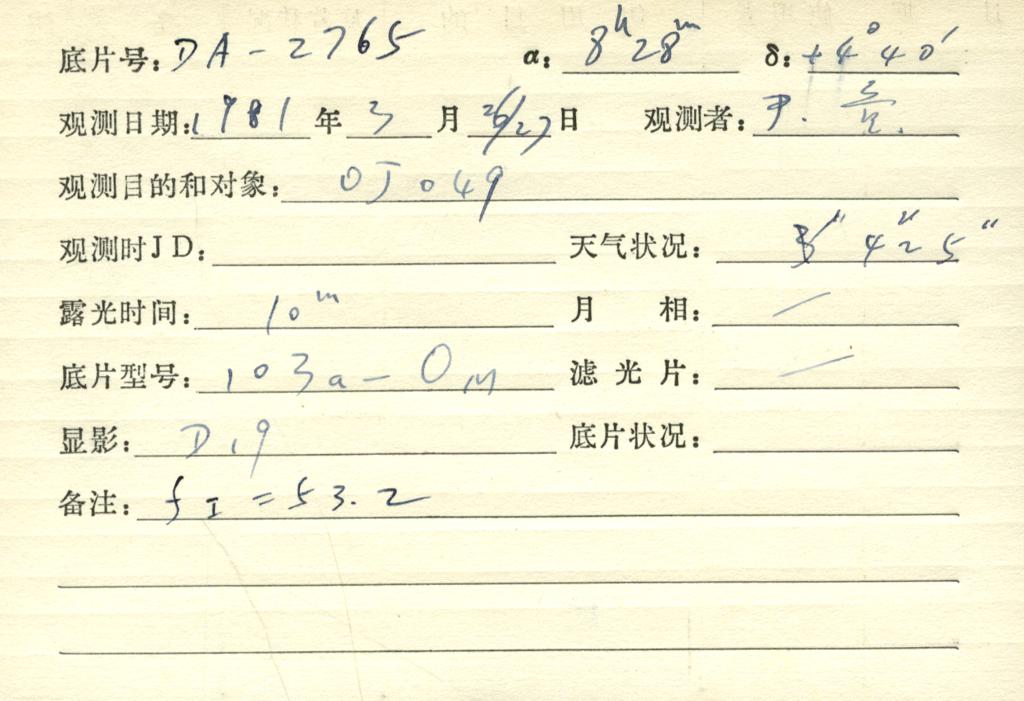 底片号: DA-2765 α: 8h28m δ: +4°40′
观测日期: 1981 年 3 月 26/27 日 观测者:
观测目的和对象: OJ 049
观测时JD: 天气状况: 3" 4" 2 5"
露光时间: 10m 月 相: —
底片型号: 103a-O 滤光片: —
显影: D19 底片状况:
备注: fI = 53.2